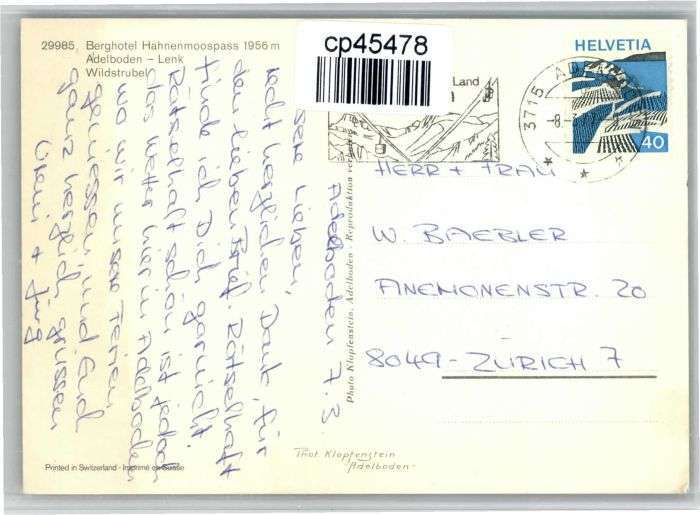 29985, Berghotel Hahnenmoospass 1956 m
Adelboden – Lenk
Wildstrubel
cp45478
Land
HELVETIA
40
3715 AD
-8.-
Adelboden 7.3.
sere Lieben,
recht herzlichen Dank, für
den lieben Brief. Rätselhaft
finde ich Dich garnicht.
Rätselhaft schön ist jedoch
das Wetter hier in Adelboden
wo wir unsere Ferien
geniessen und Euch
ganz herzlich grüssen
+ Jürg
HERR + FRAU
W. BAEBLER
ANEMONENSTR. 20
8049 - ZÜRICH 7
Photo Klopfenstein, Adelboden - Reproduktion
Phot. Klopfenstein
Adelboden
Printed in Switzerland - Imprimé en Suisse